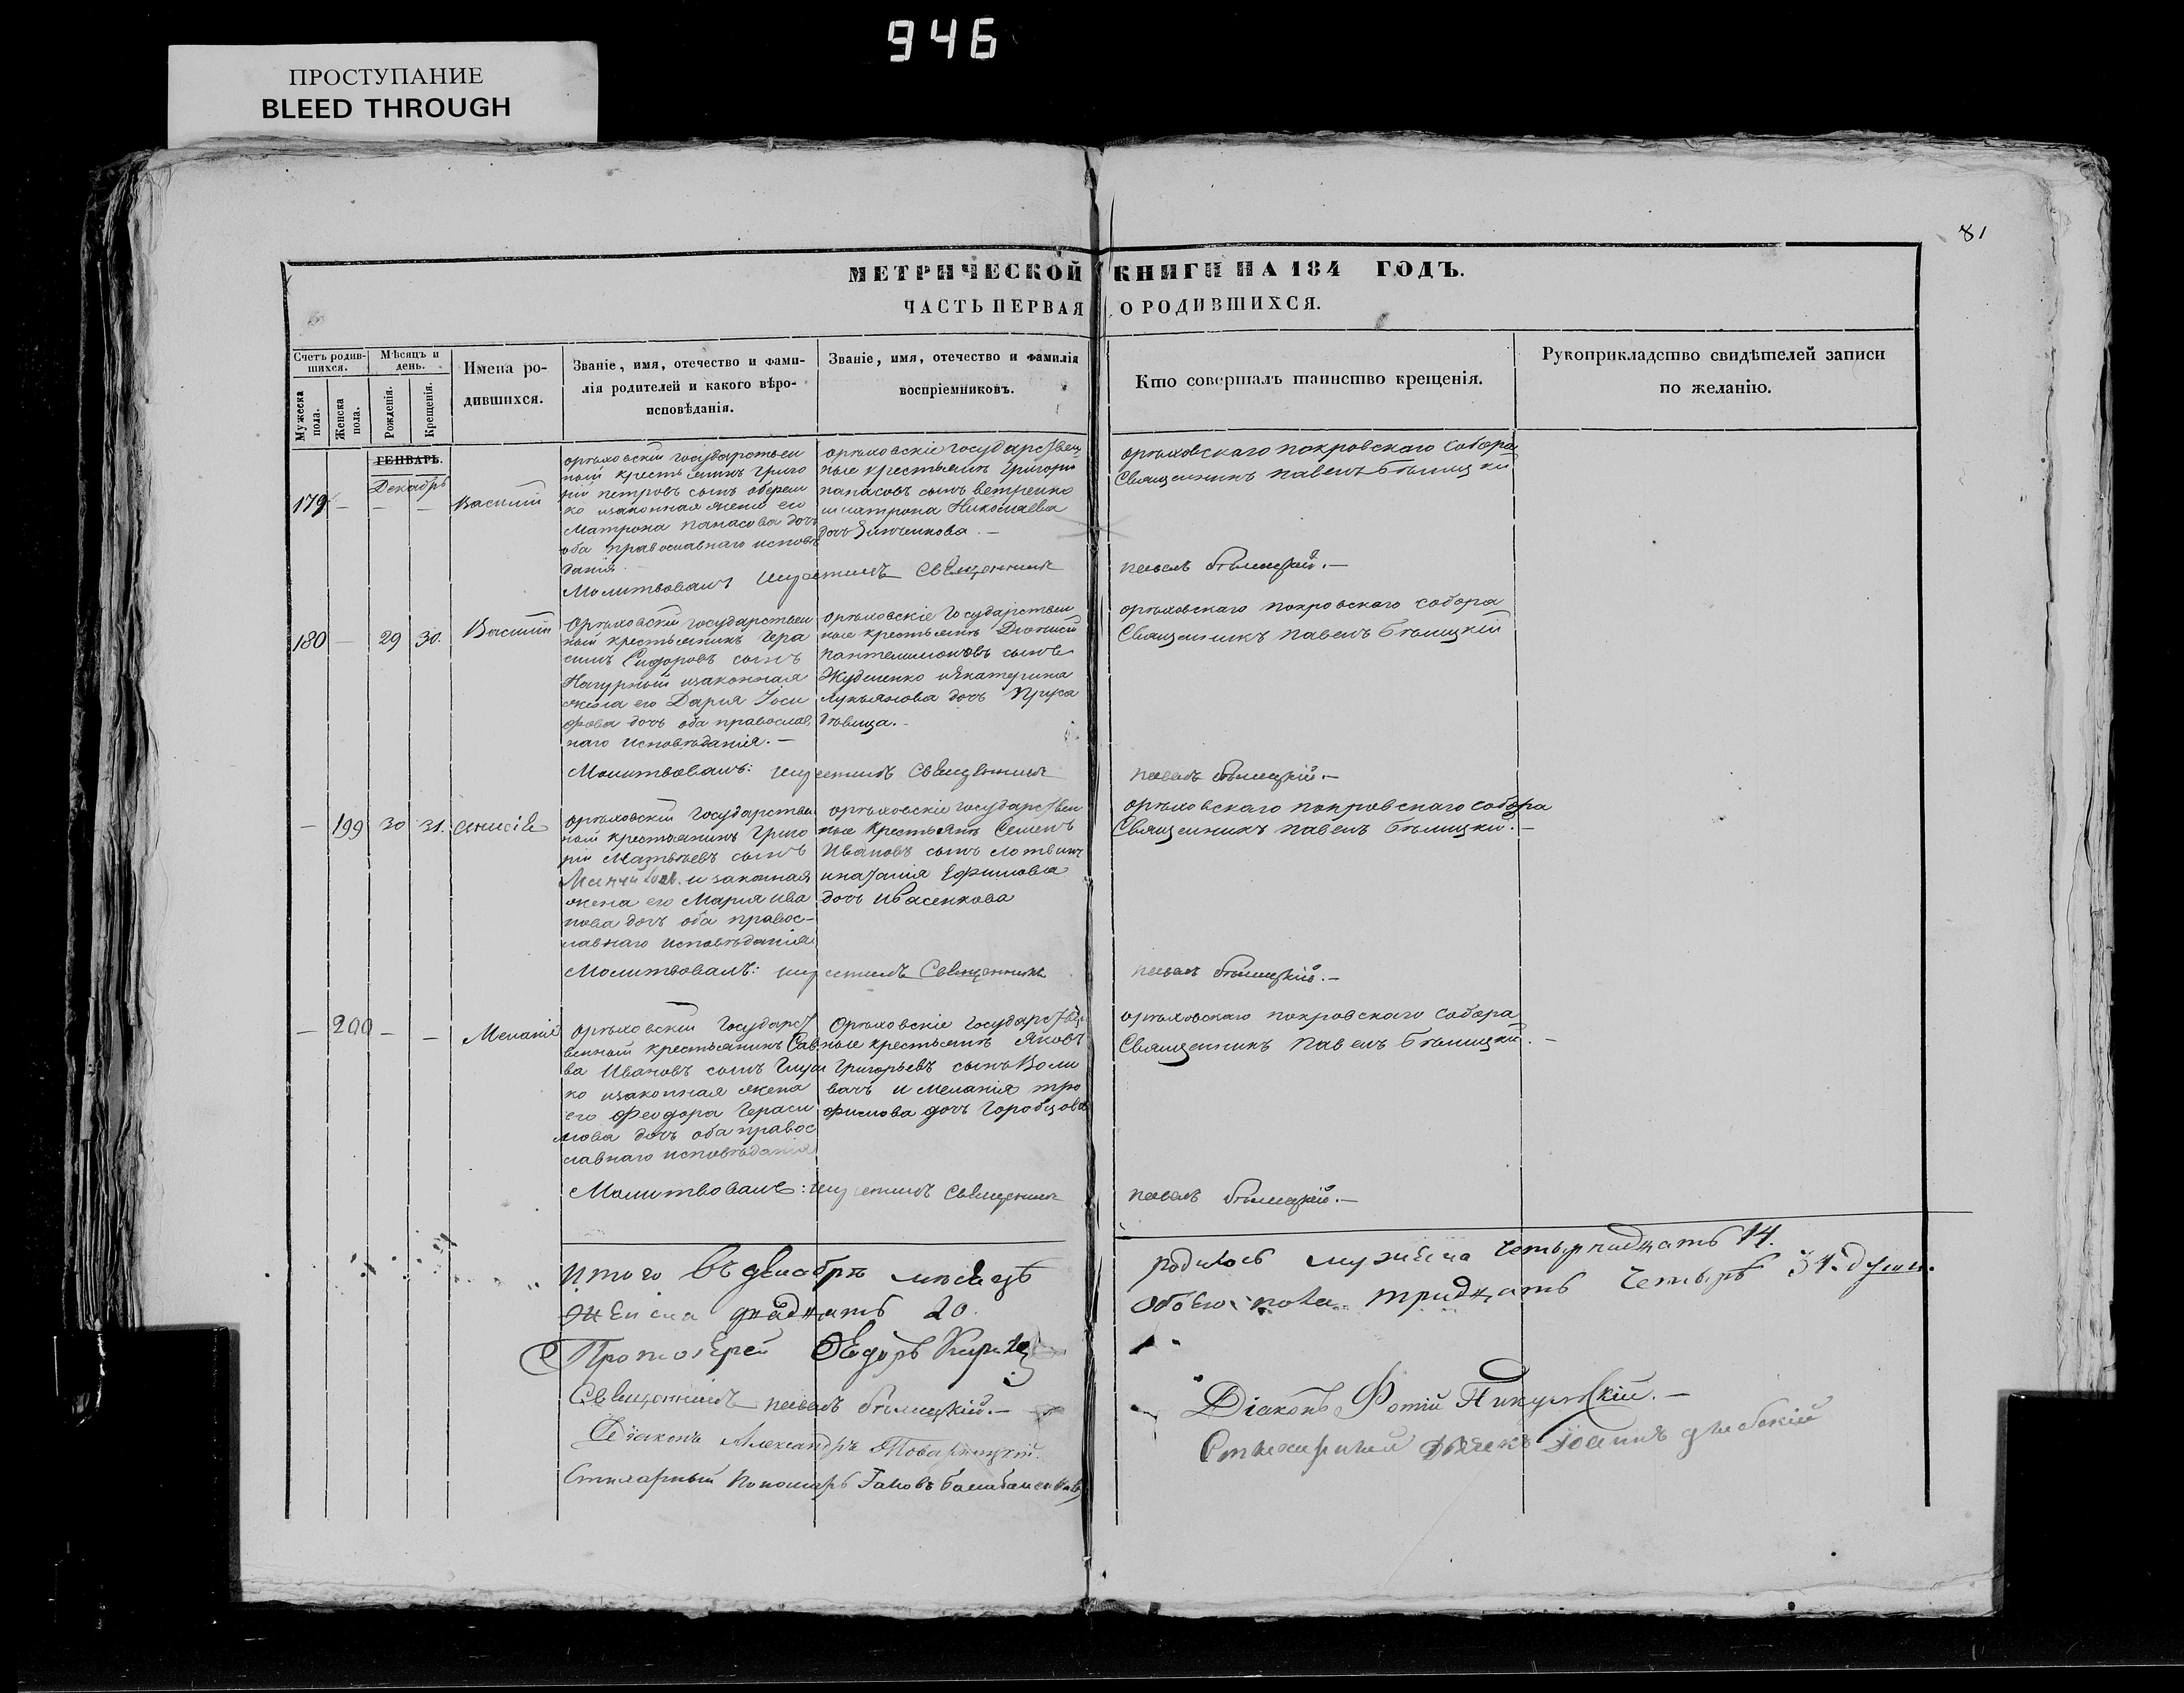 946
ПРОСТУПАНИЕ
BLEED THROUGH
81
МЕТРИЧЕСКОЙ КНИГИ НА 184 ГОДЪ.
ЧАСТЬ ПЕРВАЯ О РОДИВШИХСЯ.
Счетъ родив-
шихся.
Мужеска
пола.
Женска
пола.
Мѣсяцъ и
день.
Рожденія.
Крещенія.
Имена ро-
дившихся.
Званіе, имя, отечество и фами-
лія родителей и какого вѣро-
исповѣданія.
Званіе, имя, отечество и фамилія
воспріемниковъ.
Кто совершалъ таинство крещенія.
Рукоприкладство свидѣтелей записи
по желанію.
ГЕНВАРЬ.
Декабрь
179 — — — Василій
орѣховскій государствен
ный крестьянинъ Григо
рій петровъ сынъ
ко изаконная жена ея
Матрона панасова дочь
оба православнаго исповѣ
данія
орѣховскіе государствен
ные крестьянинъ Григорій
панасовъ сынъ ветренко
иматрона Николаева
дочь Зинченкова —
орѣховскаго покровскаго собора
Священникъ павелъ бѣлицкій
Молитвовалъ икрестилъ Священникъ павелъ бѣлицкій.—
180 — 29 30. Василій
Орѣховскій государствен
ный крестьянинъ Гера
симъ Сидоровъ сынъ
Нагурный изаконная
жена его Дарія Іоси
фова дочь оба православ
наго исповѣданія.—
орѣховскіе Государствен
ные крестьянинъ Діонисій
пантелимоновъ сынъ
иЯкатерина
Лукьянова дочь
дѣвица.—
орѣховскаго покровскаго собора
Священникъ павелъ бѣлицкій
Молитвовалъ: икрестилъ Священникъ павелъ бѣлицкій.—
— 199 30 31.
орѣховскій Государствен
ный крестьянинъ Григо
рій Матвѣевъ сынъ
и законная
жена его Марія ива
нова дочь оба правос-
лавнаго исповѣданія
орѣховскіе государствен
ные крестьянинъ Семенъ
Ивановъ сынъ
инаталія Ефимова
дочь
орѣховскаго покровскаго собора
Священникъ павелъ бѣлицкій.—
Молитвовалъ: икрестилъ Священникъ павелъ бѣлицкій.—
— 200 — — Меланія
орѣховскій Государст
венный крестьянинъ Сав
ва Ивановъ сынъ
ко изаконная жена
его Феодора Гераси
мова дочь оба правос
лавнаго исповѣданія
Орѣховскіе государствен
ные крестьянинъ Яковъ
Григорьевъ сынъ Коли
вачъ и меланія тро
фимова дочь Горобцова
орѣховскаго покровскаго собора
Священникъ павелъ бѣлицкій.—
Молитвовалъ: икрестилъ Священникъ павелъ бѣлицкій.—
Итого въ декабрѣ мѣсяцѣ родилось мужеска четырнадцать 14.
женска двадцать 20. обоего пола тридцать четыре 34. душъ.
Протоіерей Ѳедоръ
Священникъ павелъ бѣлицкій.—
Діаконъ Фотій Пикульскій.—
Діаконъ Александръ
Стихарный дьячекъ Іоаннъ
Стихарный пономарь Іаковъ